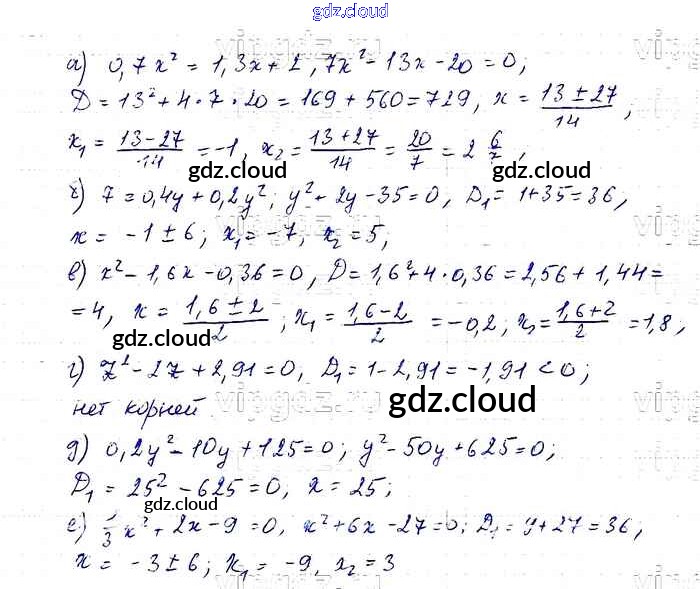 gdz.cloud
а) 0,7x² = 1,3x + 2, 7x² - 13x - 20 = 0;
D = 13² + 4·7·20 = 169 + 560 = 729, x = (13 ± 27)/14,
x₁ = (13 - 27)/14 = -1, x₂ = (13 + 27)/14 = 20/7 = 2 6/7,
gdz.cloud
б) 7 = 0,4y + 0,2y²; y² + 2y - 35 = 0, D₁ = 1 + 35 = 36,
x = -1 ± 6; x₁ = -7, x₂ = 5;
gdz.cloud
в) x² - 1,6x - 0,36 = 0, D = 1,6² + 4·0,36 = 2,56 + 1,44 =
= 4, x = (1,6 ± 2)/2; x₁ = (1,6 - 2)/2 = -0,2; x₂ = (1,6 + 2)/2 = 1,8,
gdz.cloud
г) z² - 2z + 2,91 = 0, D₁ = 1 - 2,91 = -1,91 < 0;
нет корней
gdz.cloud
д) 0,2y² - 10y + 125 = 0; y² - 50y + 625 = 0;
D₁ = 25² - 625 = 0, x = 25;
gdz.cloud
е) 1/3 x² + 2x - 9 = 0, x² + 6x - 27 = 0; D₁ = 9 + 27 = 36;
x = -3 ± 6; x₁ = -9, x₂ = 3